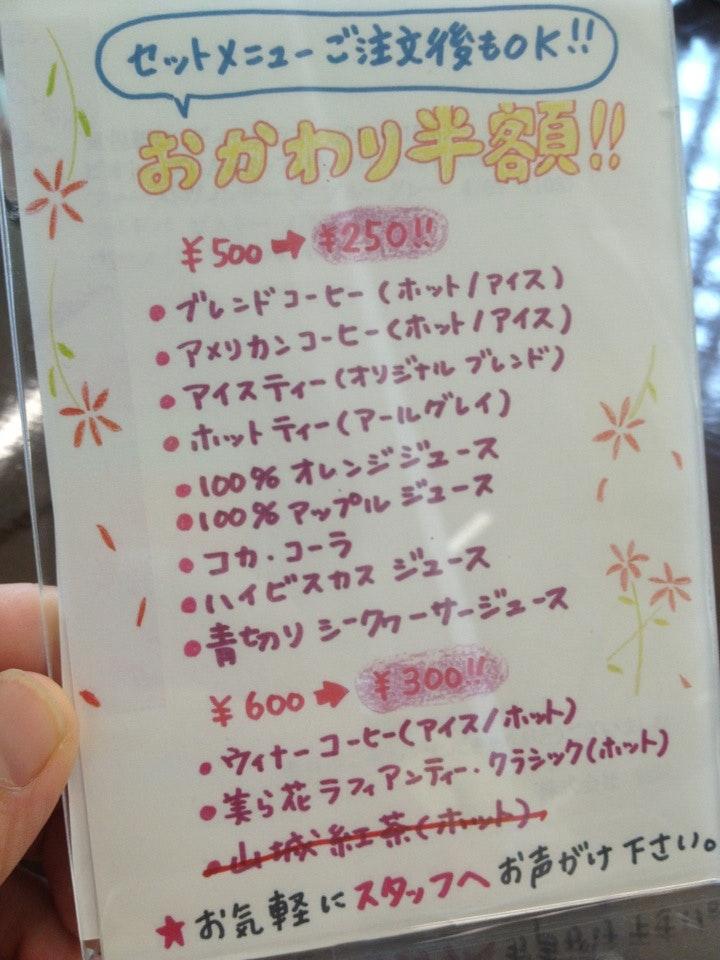 セットメニューご注文後もOK!!
おかわり半額!!
¥500➡¥250!!
●ブレンドコーヒー(ホット/アイス)
●アメリカンコーヒー(ホット/アイス)
●アイスティー(オリジナルブレンド)
●ホットティー(アールグレイ)
●100%オレンジジュース
●100%アップルジュース
●コカ・コーラ
●ハイビスカスジュース
●青切りシークヮーサージュース
¥600➡¥300!!
●ウィナーコーヒー(アイス/ホット)
●美ら花ラフィアンティー・クラシック(ホット)
●山城紅茶(ホット)
★お気軽にスタッフへお声がけ下さい。